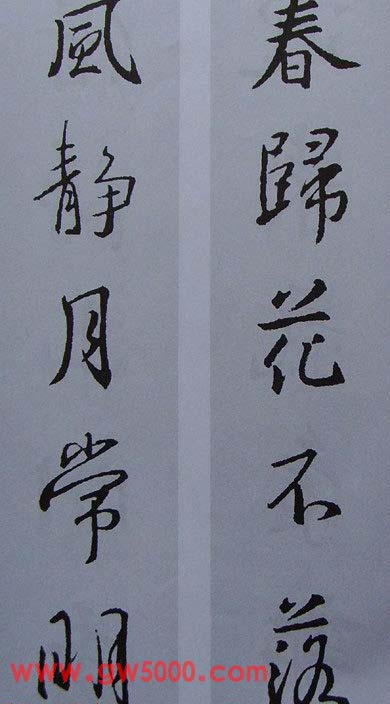 春歸花不落
風静月常明
www.gw5000.com